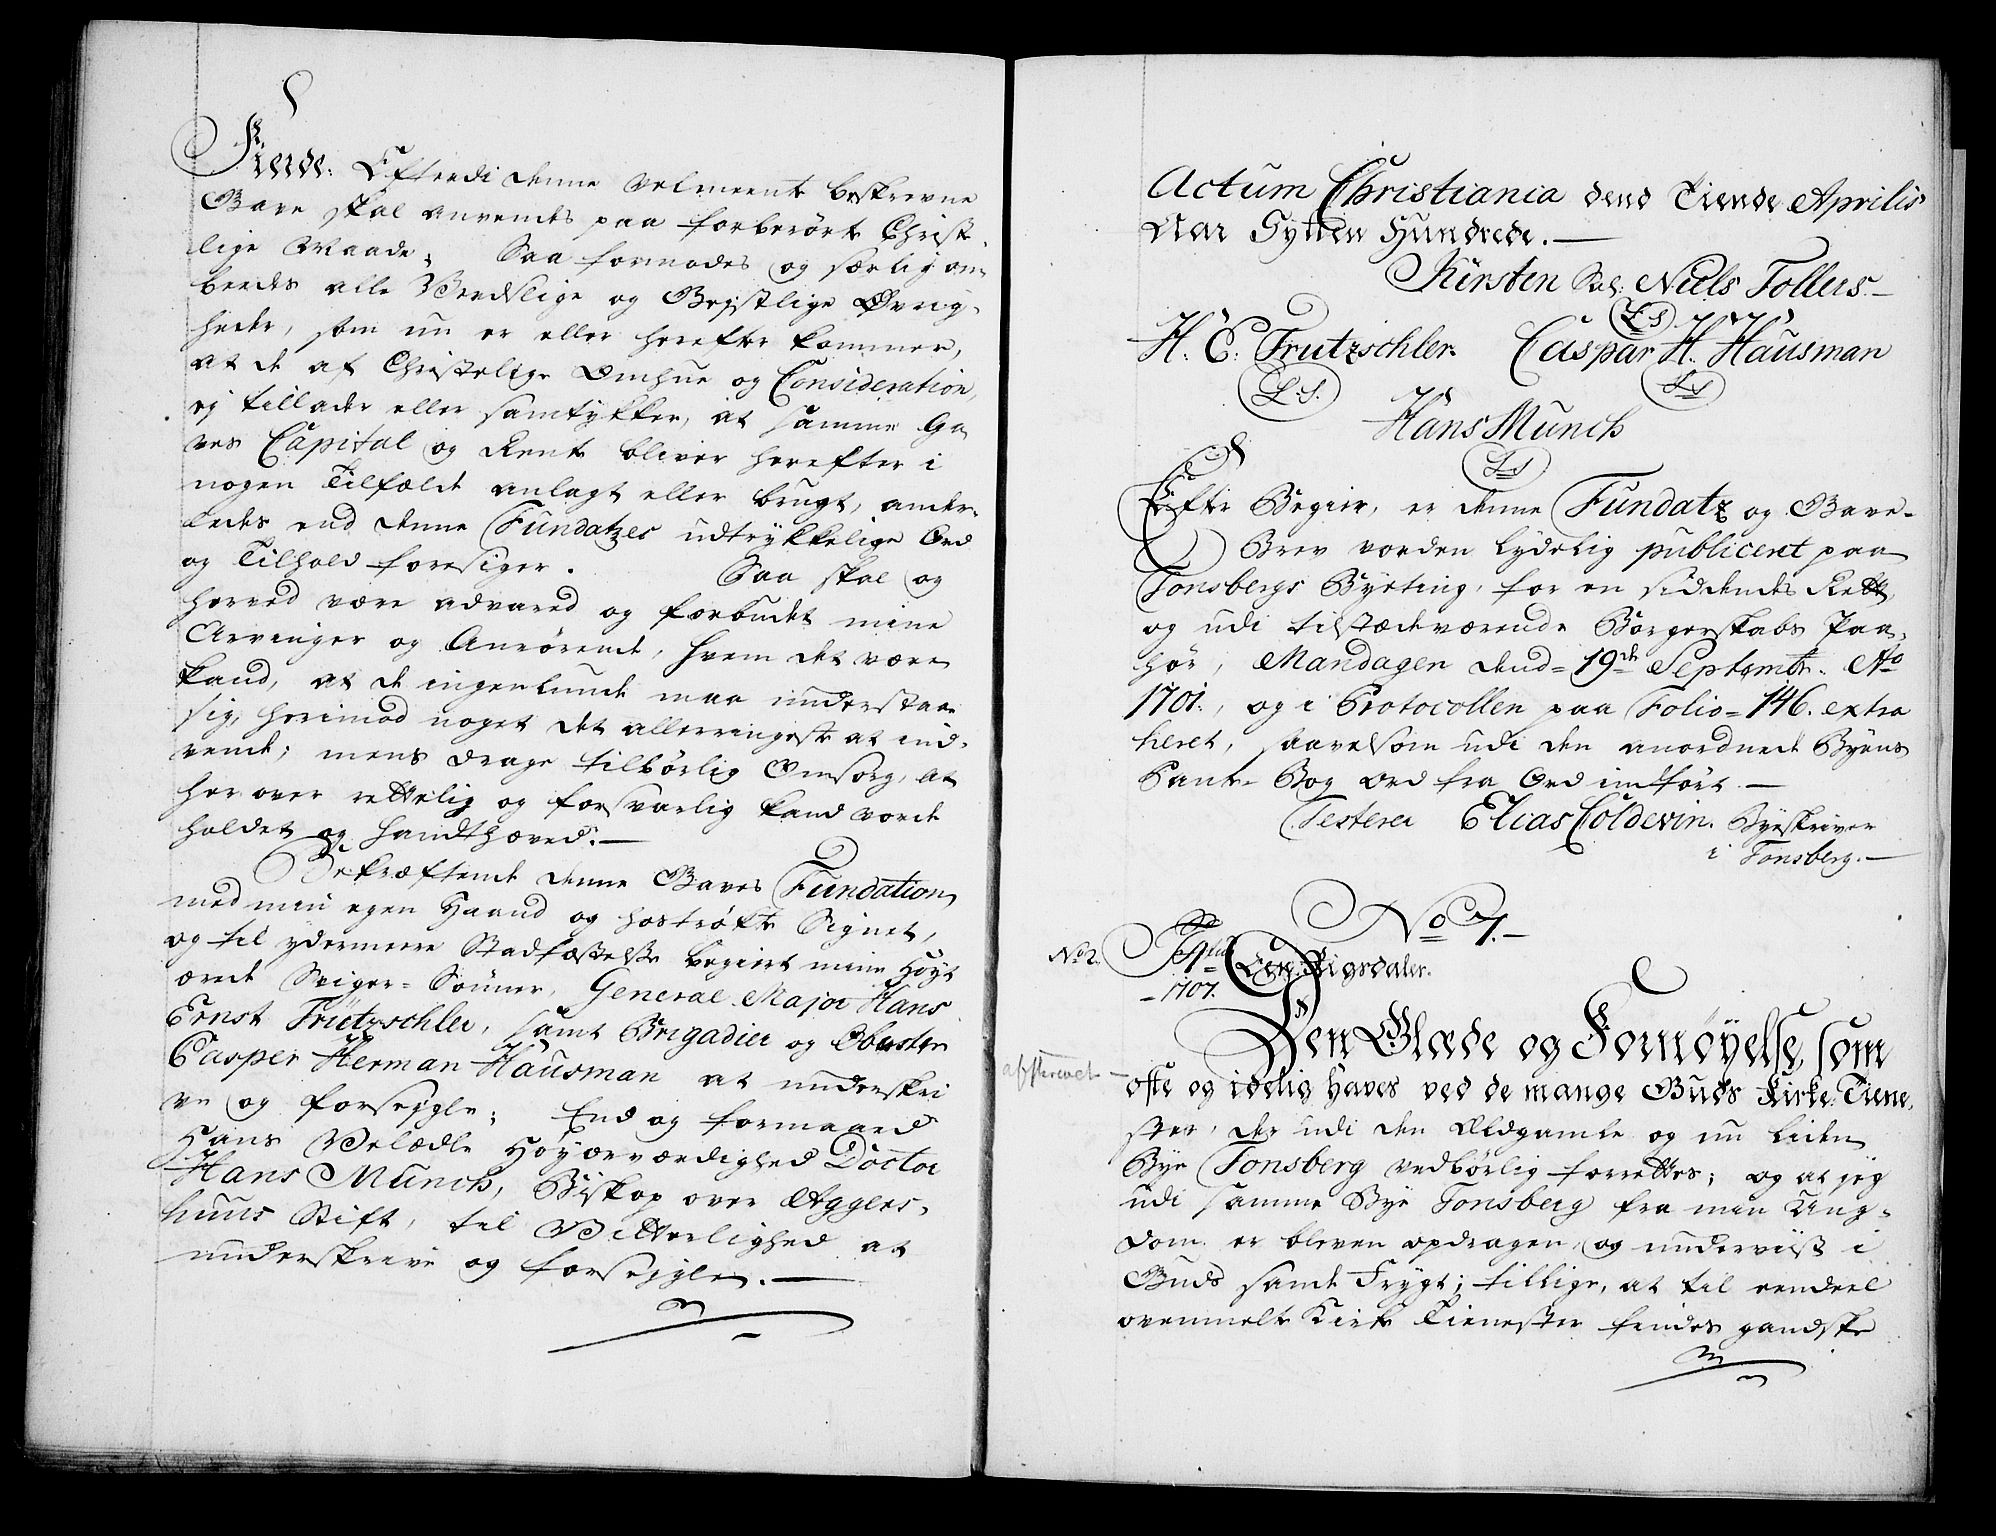 Fierde: Efterdi denne velmeente beskrevne
Gave skal anvendes paa forberørte Christ-
lige Maade; Saa formodes og særlig om-
beedes alle Verdslige og Geistlige Øvrig-
heder, som nu er eller herefter kommer,
at de af Christelige Omhue og Consideration,
ej tillader eller samtykker, at samme Ga-
ves Capital og Rente bliver herefter i
nogen Tilfælde anlagt eller brugt, ander-
ledes end denne Fundatzes udtrykkelige Ord
og Tilhold foresiger. Saa skal og
herved være advared og forbudet mine
Arvinger og Anrørende, hvem det være
kand, at de ingenlunde maa understaae
sig, herimod noget det allerringeste at ind-
vende; mens drage tilbørlig Omsorg, at
her over rettelig og forsvarlig kand vorde
holdet og handthæved.—
Bekræftende denne Gaves Fundation
med min egen Haand og hostrøkte Signet,
og til ydermeere Stadfæstelse begiert mine Høyt
ærede Sviger-Sønner, General-Major Hans
Ernst Trützschler, samt Brigadier og Oberster
Casper Herman Hausman at underskri
ve og forsegle; End og formaaed
Hans Velædle Høyærværdighed Doctor
Hans Munch, Biskop over Aggers-
huus Stift, til Vitterlighed at
underskrive og forsegle.—
Actum Christiania dend Tiende Aprilis
Aar Sytten Hundrede.—
Kirsten Sal: Niels Tollers—
L S
H. E. Trutzschler. Caspar H. Hausman
L.S. L S
Hans Munch
L S
Efter Begier, er denne Fundatz og Gave-
Brev vorden lydelig publicert paa
Tonsbergs Byeting, for en siddendes Rett,
og udi tilstædeværende Borgerskabs Paa-
hør, Mandagen dend 19de Septembr. Ao
1701., og i Protocollen paa Folio 146. extra
heret, saavelsom udi den anordnede Byens
Pante-Bog Ord fra Ord indført.—
Testerer Elias Coldevin. Byeskriver
i Tonsberg.—
No 7.—
No 2.
1707.
Een Rigsdaler.
Den Glæde og Fornøyelse, som
afskrevet—
ofte og idelig haves ved de mange Guds Kirke-Tiene-
ster, der udi den Ældgamle og nu liden
Bye Tonsberg vedbørlig forrettes; og at jeg
udi samme Bye Tonsberg fra min Ung-
dom er bleven opdragen, og underviist i
Guds sande Frygt; tillige, at til eendeel
ovenmelte Kirke Tienester findes gandske